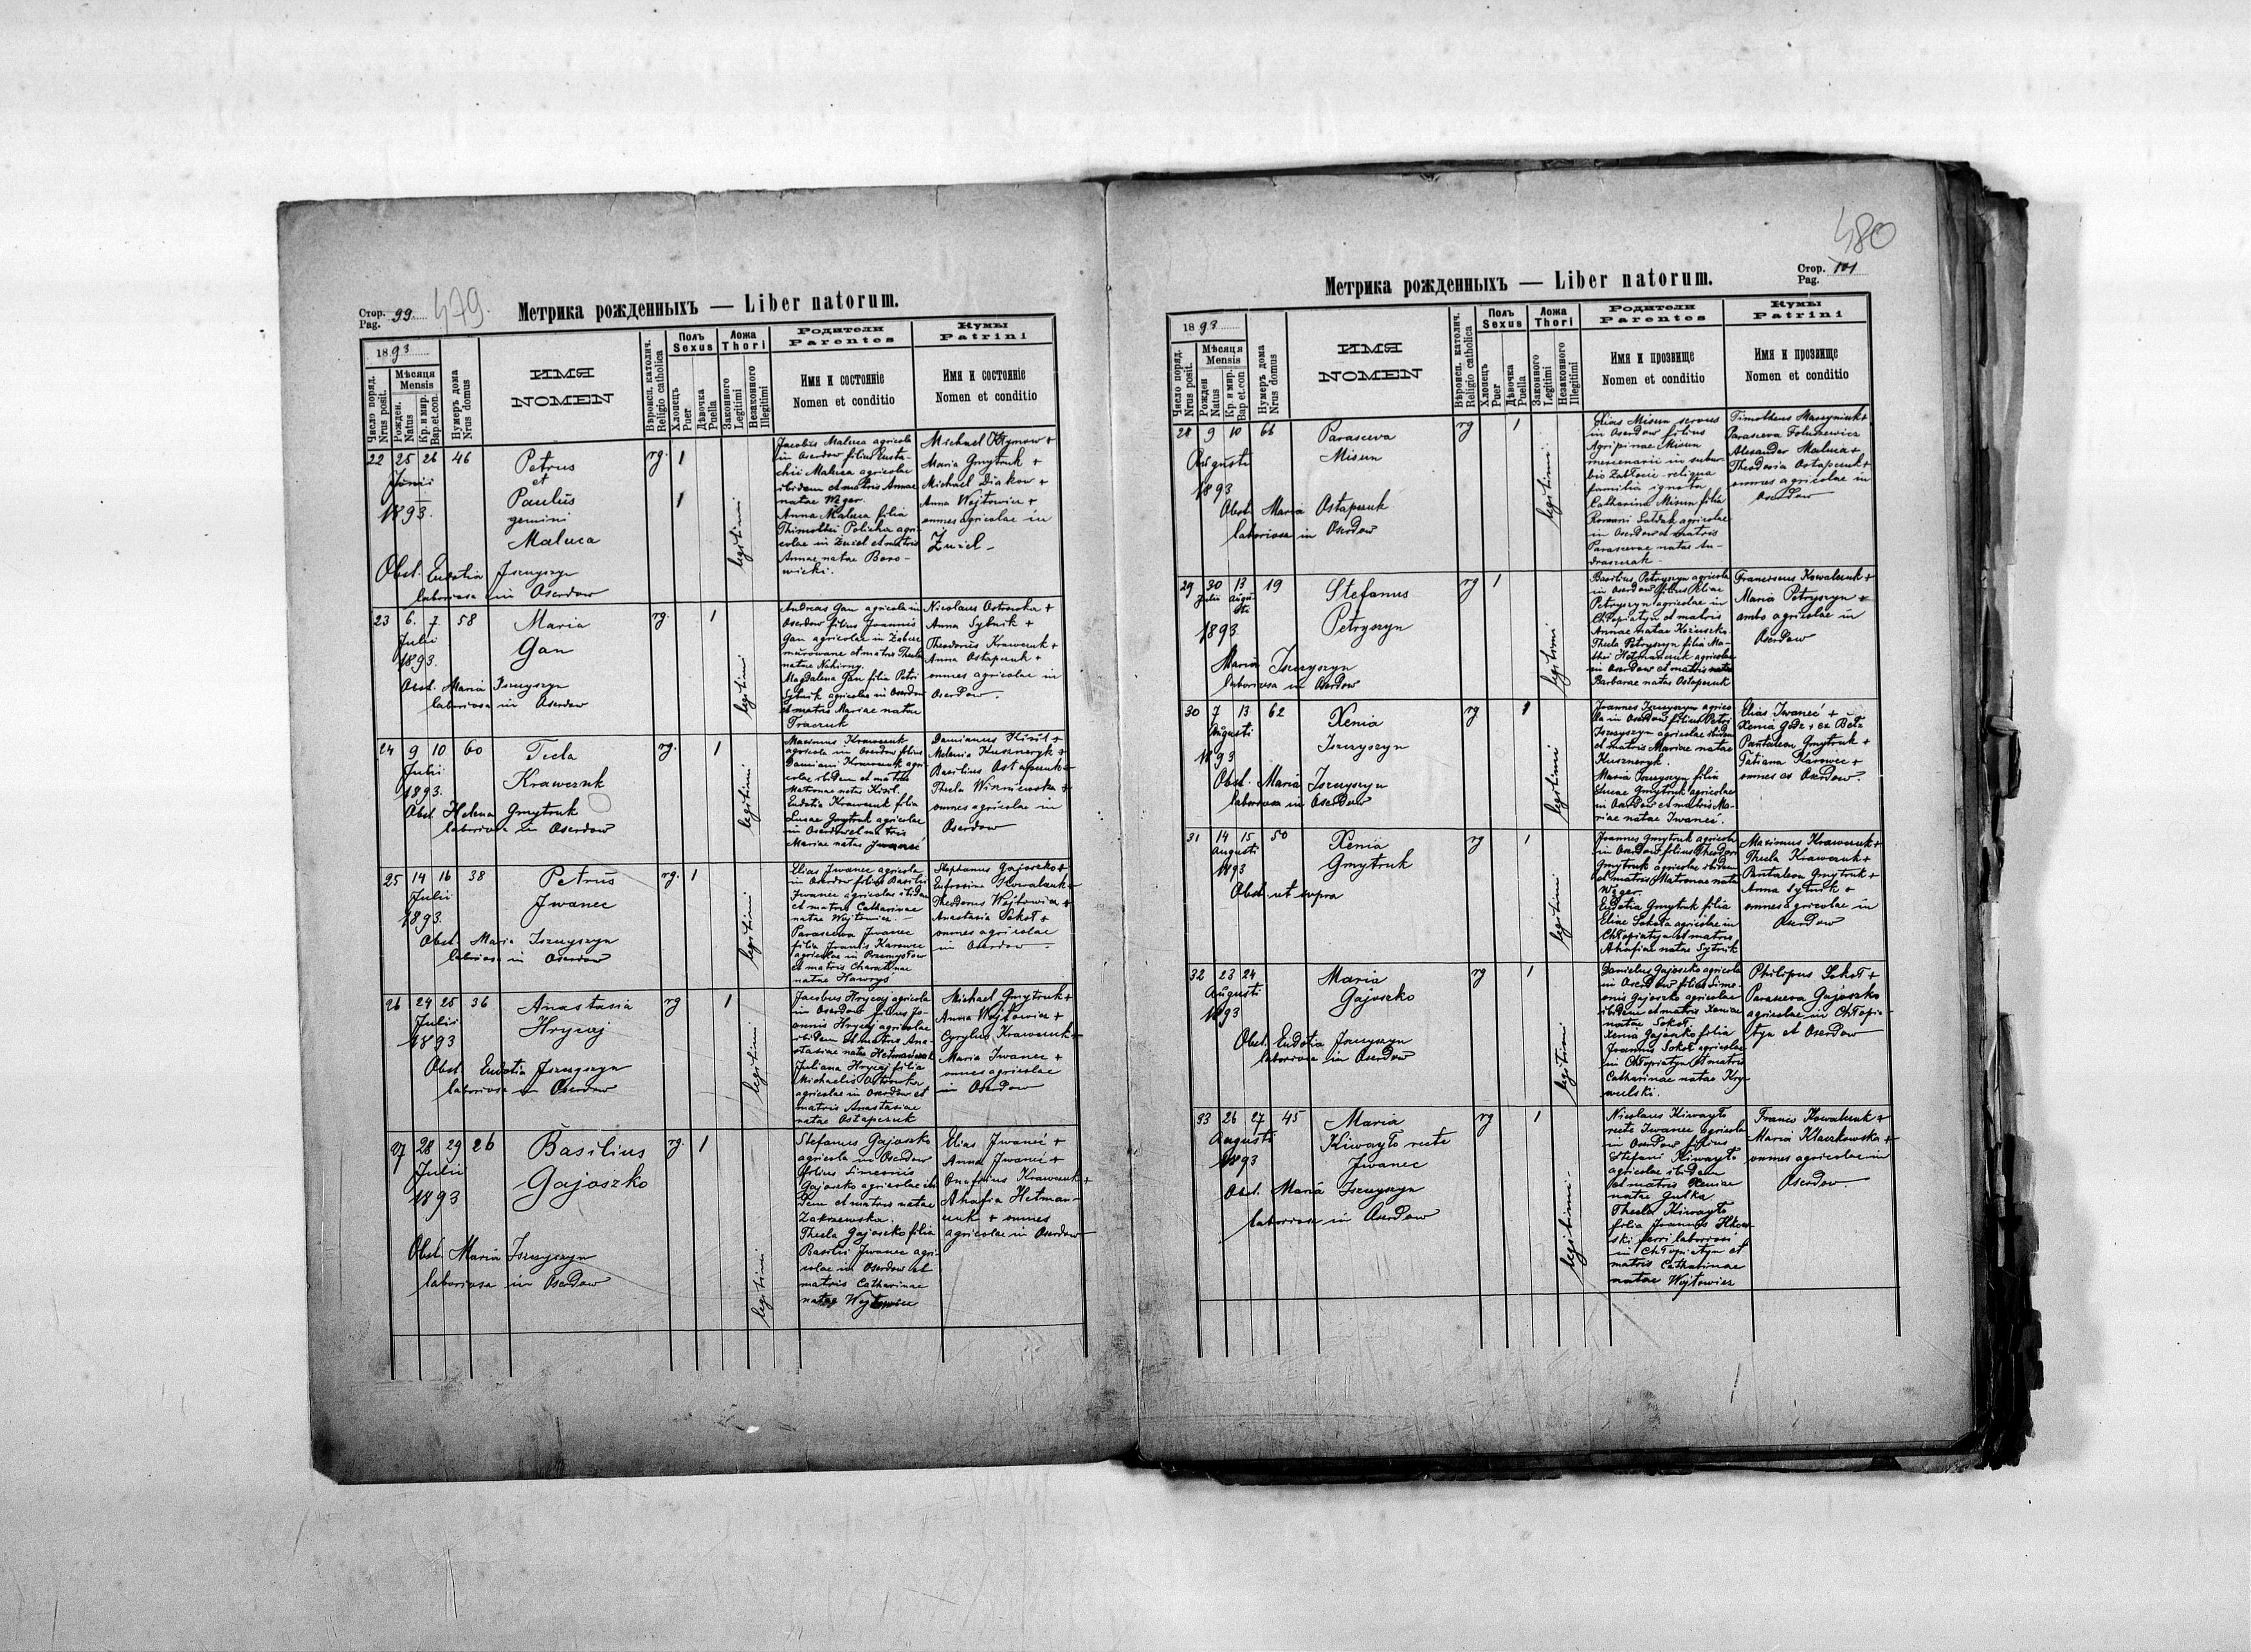 Стор.
Pag. 99.
479.
Метрика рожденныхъ — Liber natorum.
1893
Число поряд.
Nrus posit.
Мѣсяця
Mensis
Рожден.
Natus
Кр. и мир.
Bap. et. con.
Нумеръ дома
Nrus domus
ИМЯ
NOMEN
Вѣроисп. католич.
Religio catholica
Полъ
Sexus
Хлопецъ
Puer
Дѣвочка
Puella
Ложа
Thori
Законного
Legitimi
Незаконного
Illegitimi
Родители
Parentes
Имя и состояніе
Nomen et conditio
Кумы
Patrini
Имя и состояніе
Nomen et conditio
22 25 26 46
Junii
1893.
Petrus
et
Paulus
gemini
Maluca
rg. 1
1
legitimi
Obst. Eudotia Iszczyszyn
laboriosa in Oserdow
Jacobus Maluca agricola
in Oserdow filius Eusta-
chii Maluca agricolae
ibidem et matris Annae
natae Węger.
Anna Maluca filia
Thimothei Policha agri-
colae in Żniel et matris
Annae natae Boro-
wicki.
Michael
Maria Gmytruk +
Michael Diakow +
Anna Wojtowicz +
omnes agricolae in
Żniel
23 6. 7. 58
Julii
1893.
Maria
Gan
rg. 1
legitimi
Obst. Maria Iszczyszyn
laboriosa in Oserdow
Andreas Gan agricola in
Oserdow filius Joannis
Gan agricolae in Żabcze
murowane et matris Thecla
natae Nahirny.
Magdalena Gan filia Petri
Sytnik agricolae in Oserdow
et matris Mariae natae
Traczuk
Nicolaus Ostrowka +
Anna Sytnik +
Theodorus Krawczuk +
Anna Ostapczuk +
omnes agricolae in
Oserdow.
24 9 10 60
Julii
1893.
Tecla
Krawczuk
rg. 1
legitimi
Obst. Helena Gmytruk
laboriosa in Oserdow
Maximus Krawczuk
agricola in Oserdow filius
Damiani Krawczuk agri-
colae ibidem et matris
Matronae natae Kisil.
Eudotia Krawczuk filia
Lucae Gmytruk agricolae
in Oserdow et matris
Mariae natae Jwaneć
Damianus Kisil +
Melania Kuszneryk +
Basilius Ostapczuk +
Thecla Wiśniewska +
omnes agricolae in
Oserdow
25 14 16 38
Julii
1893.
Petrus
Jwanec
rg. 1
legitimi
Obst. Maria Iszczyszyn
laboriosa in Oserdow
Elias Jwanec agricola
in Oserdow filius Basilii
Jwanec agricolae ibidem
et matris Catharinae
natae Wojtowicz. —
Parasceva Jwanec
filia Joannis Karowec
agricolae in Przemysłow
et matris Charatinae
natae Hawryś
Stephanus Gajoszko +
Eufrosina Kowalczuk +
Theodorus Wojtowicz +
Anastasia Sokoł +
omnes agricolae
in Oserdow
26 24 25 36
Julii
1893
Anastasia
Hrycaj
rg 1
legitimi
Obst Eudotia Iszczyszyn
laboriosa in Oserdow
Jacobus Hrycaj agricola
in Oserdow filius Jo-
annis Hrycaj agricolae
ibidem et matris Ana-
stasiae natae Hetmańczuk
Juliana Hrycaj filia
Michaelis Ostrowka
agricolae in Oserdow et
matris Anastasiae
natae Ostapczuk
Michael Gmytruk +
Anna Wojtowicz +
Cyrylus Krawczuk +
Maria Jwanec +
omnes agricolae
in Oserdow
27 28 29 26
Julii
1893
Basilius
Gajoszko
rg. 1
legitimi
Obst. Maria Iszczyszyn
laboriosa in Oserdow
Stefanus Gajoszko
agricola in Oserdow
filius Simeonis
Gajoszko agricolae ibi-
dem et matris natae
Zakrzewska.
Thecla Gajoszko filia
Basilii Jwanec agri-
colae in Oserdow et
matris Catharinae
natae Wojtowicz
Elias Jwaneć +
Anna Jwaneć +
Onufrius Krawczuk +
Ahafia Hetman-
czuk + omnes
agricolae in Oserdow
480
Стор.
Pag. 101
Метрика рожденныхъ — Liber natorum.
1893
Число поряд.
Nrus posit.
Мѣсяця
Mensis
Рожден
Natus
Кр. и мир.
Bap et. con
Нумеръ дома
Nrus domus
ИМЯ
NOMEN
Вѣроисп. католич.
Religio catholica
Полъ
Sexus
Хлопецъ
Puer
Дѣвочка
Puella
Ложа
Thori
Законного
Legitimi
Незаконного
Illegitimi
Родители
Parentes
Имя и прозвище
Nomen et conditio
Кумы
Patrini
Имя и прозвище
Nomen et conditio
28 9 10 66
Augusti
1893
Parasceva
Misun
rg 1
legitimi
Obst. Maria Ostapczuk
laboriosa in Oserdow
Elias Misun servus
in Oserdow filius
Agripinae Misun
mercenarii in subur-
bio Zabłocie reliqua
familia ignota
Catharina Misun filia
Romani Sałdak agricolae
in Oserdow et matris
Parascevae natae An-
draszczak
Timotheus Marcyniuk +
Parasceva Foluszewicz
Alexander Maluca +
Theodosia Ostapczuk +
omnes agricolae in
Oserdow
29 30 13 19
Julii Augu-
sti
1893
Stefanus
Petryszyn
rg 1
legitimi
Maria Iszczyszyn
laboriosa in Oserdow
Basilius Petryszyn agricola
in Oserdow filius Eliae
Petryszyn agricolae in
Chłopiatyn et matris
Annae natae Kożuszko.
Thecla Petryszyn filia Ma-
thei Hetmańczuk agricolae
in Oserdow et matris natae
Barbarae natae Ostapczuk
Franciscus Kowalczuk +
Maria Petryszyn +
ambo agricolae in
Oserdow
30 7 13 62
Augusti
1893
Xenia
Iszczyszyn
rg 1
legitimi
Obst. Maria Iszczyszyn
laboriosa in Oserdow
Joannes Iszczyszyn agrico-
la in Oserdow filius Petri
Iszczyszyn agricolae ibidem
et matris Mariae natae
Kuszneryk.
Maria Iszczyszyn filia
Lucae Gmytruk agricolae
in Oserdow et matris Ma-
riae natae Jwaneć.
Elias Jwaneć +
Xenia Gdz + ex Bełz
Pantaleon Gmytruk +
Tatiana Karowec +
omnes ex Oserdow.
31 14 15 50
Augusti
1893
Xenia
Gmytruk
rg 1
legitimi
Obst. ut supra
Joannes Gmytruk agricola
in Oserdow filius Theodori
Gmytruk agricolae ibidem
et matris Matronae natae
Węger.
Eudotia Gmytruk filia
Eliae Sokoła agricolae in
Chłopiatyn et matris
Ahafiae natae Sytnik
Maximus Krawczuk +
Thecla Krawczuk +
Pantaleon Gmytruk +
Anna Sytnik +
omnes agricolae in
Oserdow
32 23 24
Augusti
1893
Maria
Gajoszko
rg 1
legitimi
Obst. Eudotia Iszczyszyn
laboriosa in Oserdow
Danielus Gajoszko agricola
in Oserdow filius Sime-
onis Gajoszko agricolae
ibidem et matris Xeniae
natae Sokoł
Xenia Gajoszko filia
Joannis Sokoł agricolae
in Chłopiatyn et matris
Catharinae natae Kry-
wulski.
Philipus Sokoł +
Parasceva Gajoszko
agricolae in Chłopia-
tyn et Oserdow
33 26 27 45
Augusti
1893
Maria
Kiwayło recte
Jwanec
rg 1
legitimi
Obst. Maria Iszczyszyn
laboriosa in Oserdow
Nicolaus Kiwayło
recte Jwanec agricola
in Oserdow filius
Stefani Kiwayło
agricolae ibidem
et matris Xeniae
natae Gulka
Thecla Kiwayło
filia Joannis Ilkow-
ski ferri laboriosi
in Chłopiatyn et
matris Catharinae
natae Wojtowicz
Franc Kowalczuk +
Maria Klaczkowska +
omnes agricolae in
Oserdow